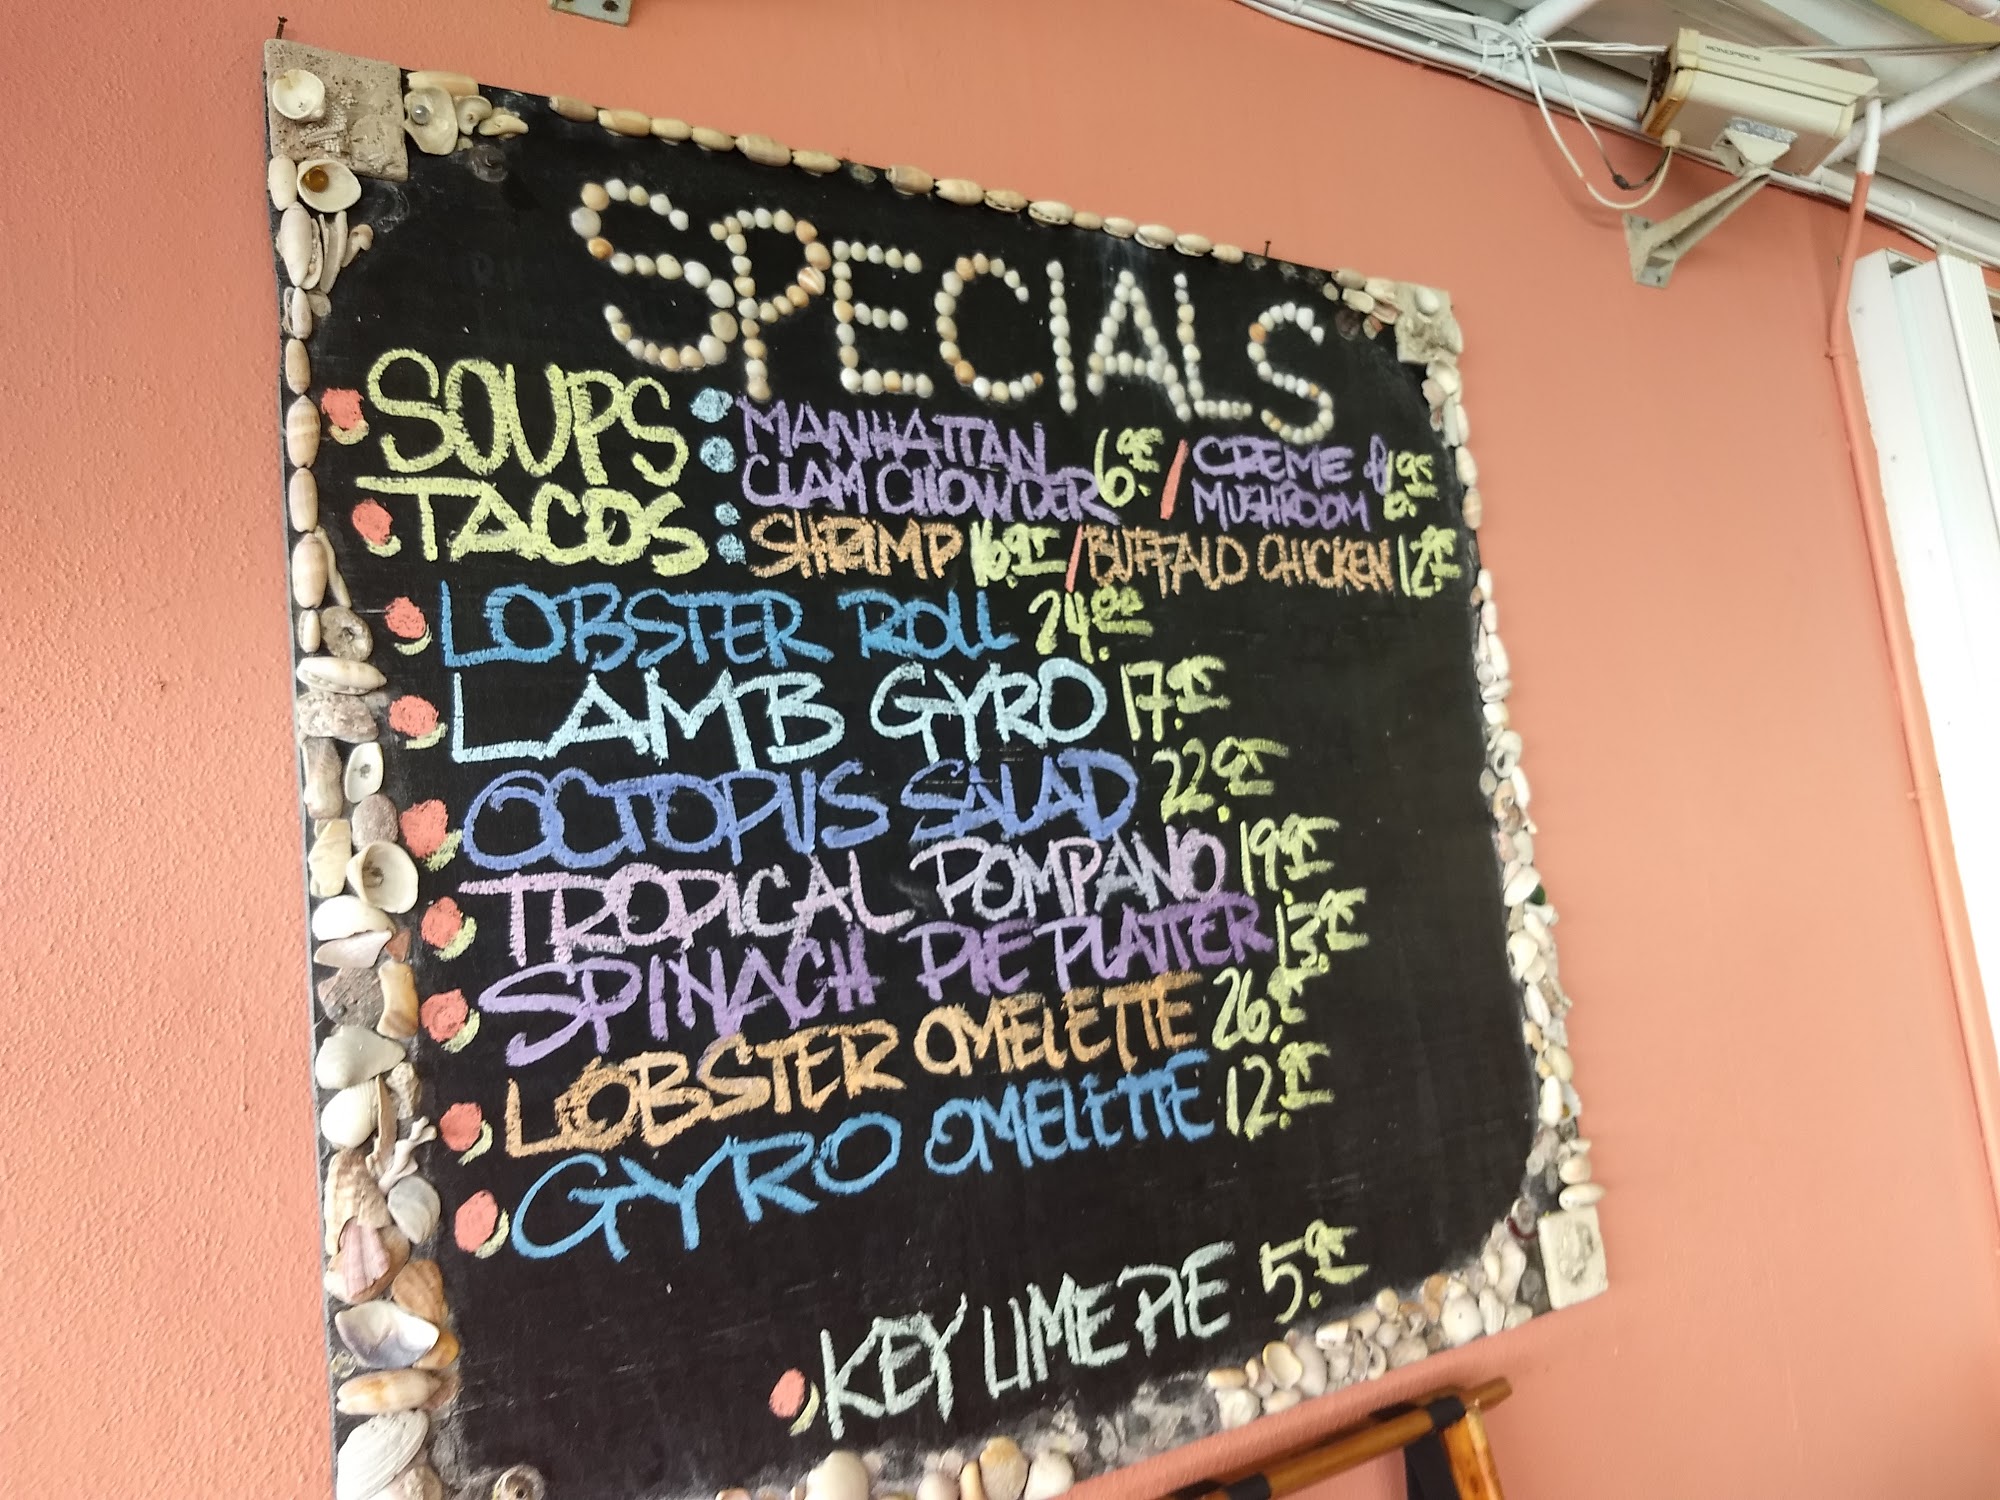 SPECIALS
SOUPS : MANHATTAN CLAM CHOWDER 6.95 / CREME of MUSHROOM
TACOS : SHRIMP 16.95 / BUFFALO CHICKEN 12.95
LOBSTER ROLL 24.
LAMB GYRO 17.95
OCTOPUS SALAD 22.95
TROPICAL POMPANO 19.95
SPINACH PIE PLATTER 13.95
LOBSTER OMELETTE 26.
GYRO OMELETTE 12.95
KEY LIME PIE 5.95
MONOPRICE